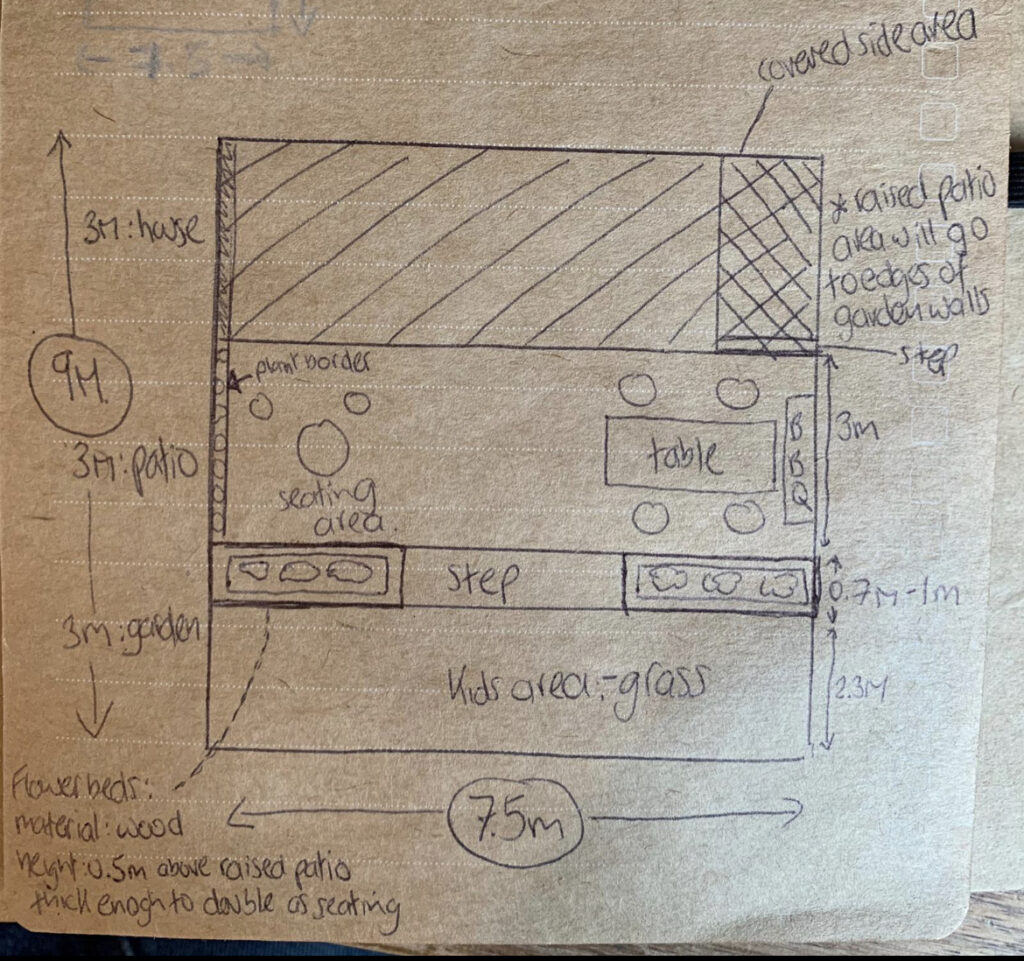 7.5
covered side area
3M: house
* raised patio
area will go
to edges of
garden walls
step
9M.
plant border
3m
table
BBQ
3M: patio
seating
area.
step
0.7M-1m
3m: garden
Kids area:-grass
2.3M
Flowerbeds:
material: wood
7.5m
height: 0.5m above raised patio
thick enogh to double as seating